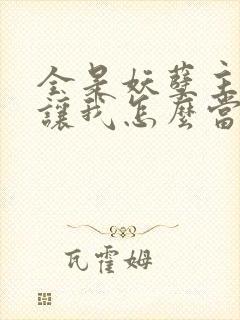 全是妖孽主
讓我怎麼當
瓦霍姆